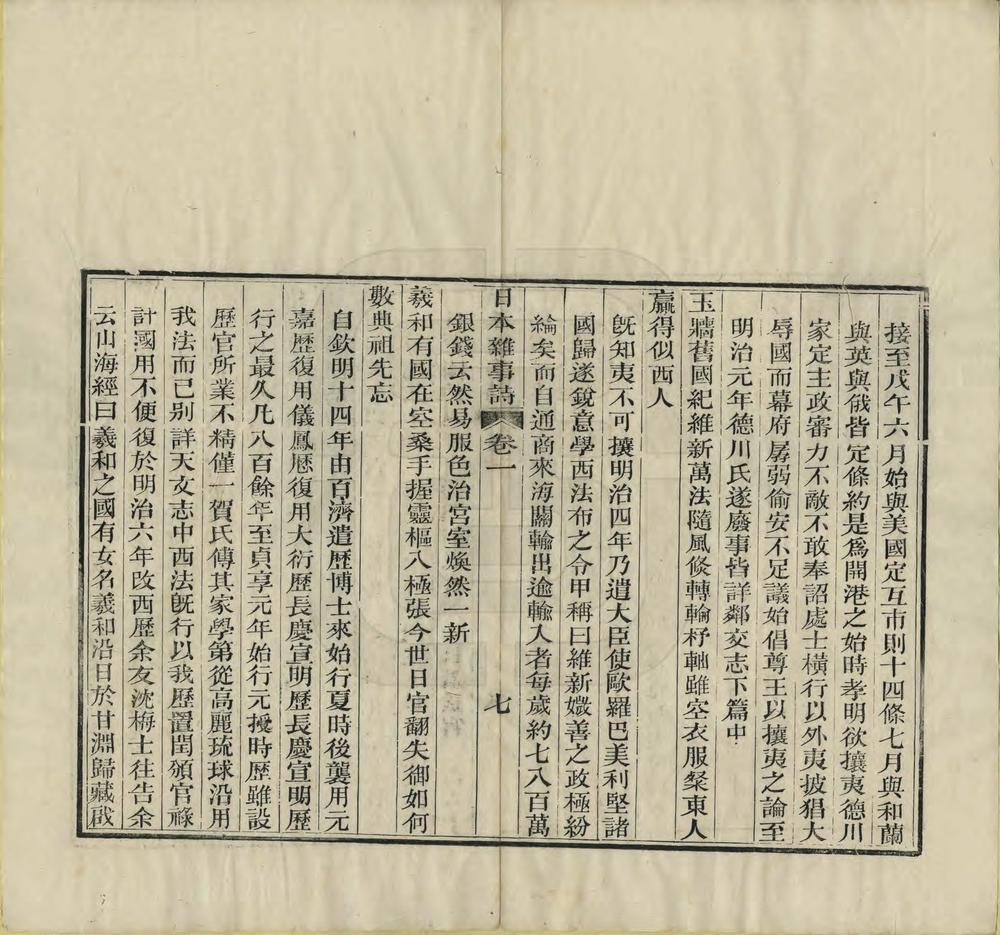 接至戊午六月始與美國定互市則十四條七月與和蘭
與英與俄皆定條約是爲開港之始時孝明欲攘夷德川
家定主政審力不敵不敢奉詔處士橫行以外夷披猖大
辱國而幕府孱弱偷安不足議始倡尊王以攘夷之論至
明治元年德川氏遂廢事皆詳鄰交志下篇中
玉牆舊國紀維新萬法隨風倏轉輪杼軸雖空衣服粲東人
贏得似西人
旣知夷不可攘明治四年乃遣大臣使歐羅巴美利堅諸
國歸遂銳意學西法布之令甲稱曰維新嫩善之政極紛
綸矣而自通商來海關輸出逾輸入者每歲約七八百萬
日本雜事詩 卷一 七
銀錢云然易服色治宮室煥然一新
羲和有國在空桑手握靈樞八極張今世日官翻失御如何
數典祖先忘
自欽明十四年由百濟遣歷博士來始行夏時後襲用元
嘉歷復用儀鳳歷復用大衍歷長慶宣明歷長慶宣明歷
行之最久凡八百餘年至貞享元年始行元擾時歷雖設
歷官所業不精僅一賀氏傳其家學第從高麗琉球沿用
我法而已別詳天文志中西法旣行以我歷置閏頒官祿
計國用不便復於明治六年改西歷余友沈梅士往告余
云山海經曰羲和之國有女名羲和沿日於甘淵歸藏啟